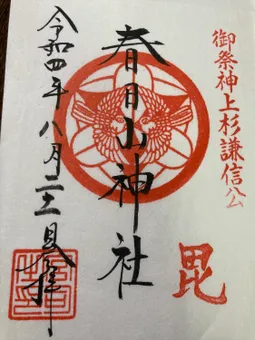 御祭神上杉謙信公
毘
春日山神社
令和四年八月二十日拝